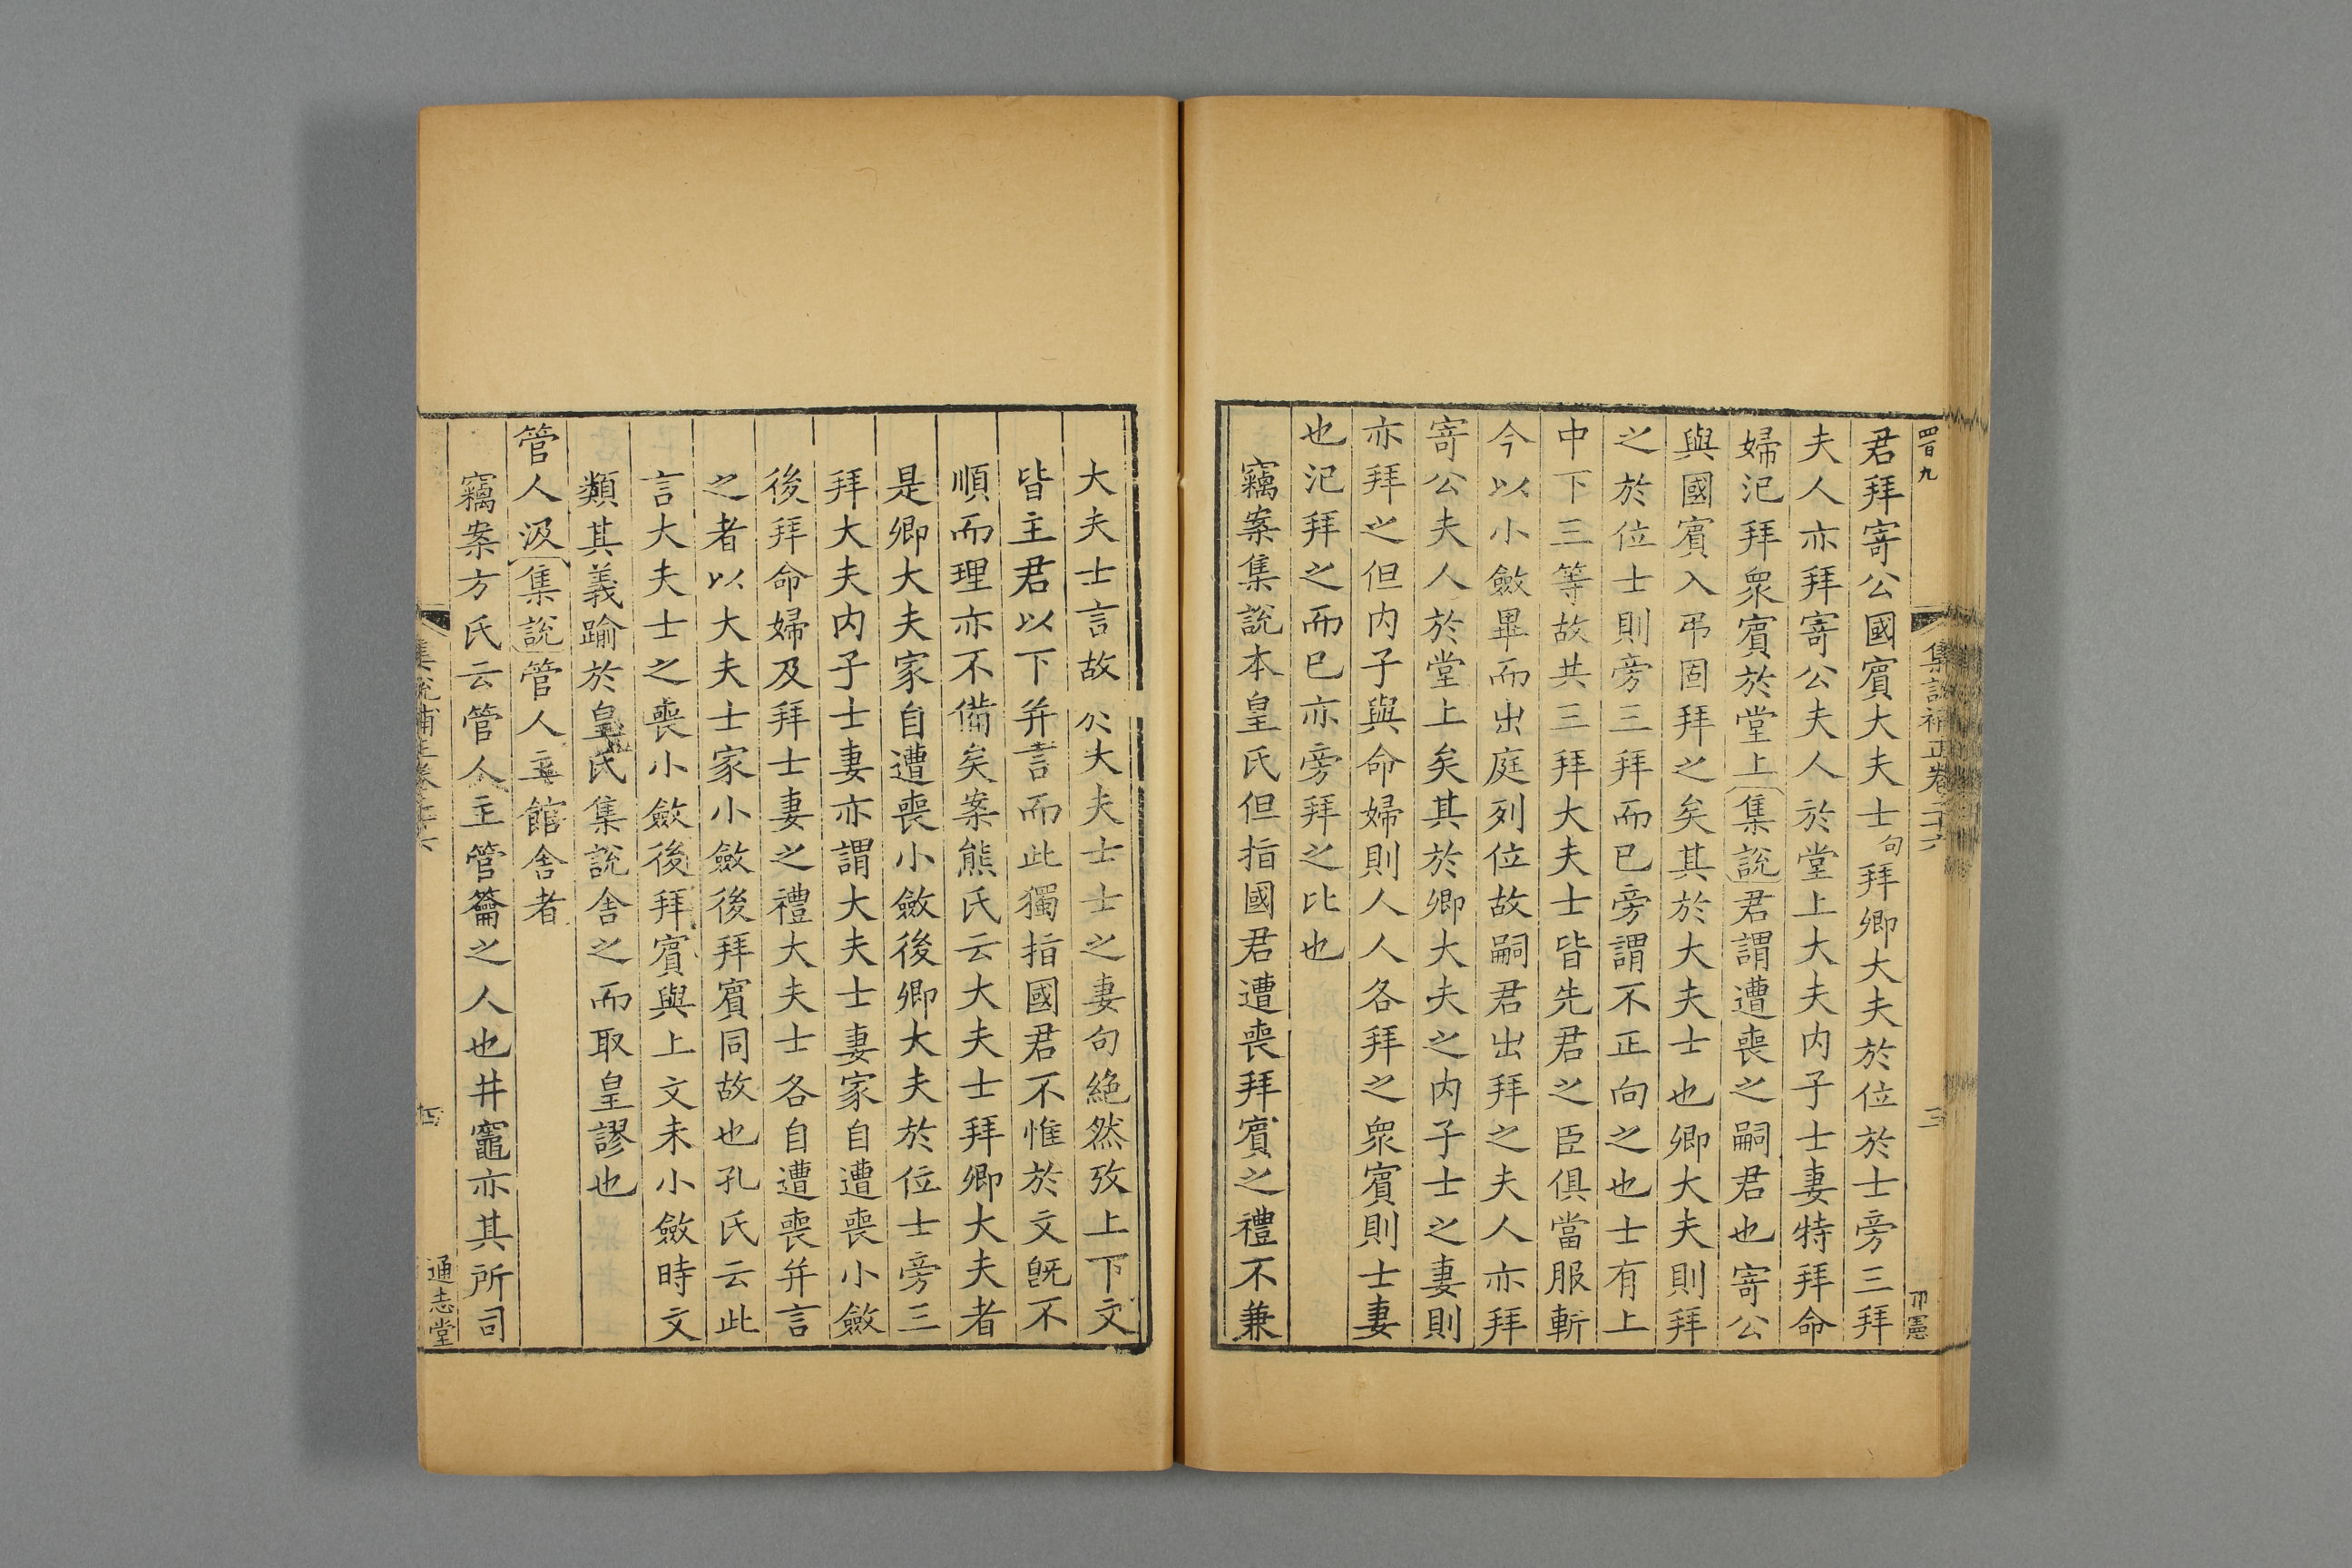 四百九
集說補正卷二十六
三
君拜寄公國賓大夫士句拜卿大夫於位於士旁三拜
夫人亦拜寄公夫人於堂上大夫内子士妻特拜命
婦汜拜衆賓於堂上集說君謂遭喪之嗣君也寄公
與國賓入弔固拜之矣其於大夫士也卿大夫則拜
之於位士則旁三拜而已旁謂不正向之也士有上
中下三等故共三拜大夫士皆先君之臣俱當服斬
今以小斂畢而出庭列位故嗣君出拜之夫人亦拜
寄公夫人於堂上矣其於卿大夫之内子士之妻則
亦拜之但内子與命婦則人人各拜之衆賓則士妻
也汜拜之而已亦旁拜之比也
竊案集說本皇氏但指國君遭喪拜賓之禮不兼
大夫士言故於大夫士士之妻句絶然攷上下文
皆主君以下并言而此獨指國君不惟於文旣不
順而理亦不備矣案熊氏云大夫士拜卿大夫者
是卿大夫家自遭喪小斂後卿大夫於位士旁三
拜大夫内子士妻亦謂大夫士妻家自遭喪小斂
後拜命婦及拜士妻之禮大夫士各自遭喪并言
之者以大夫士家小斂後拜賓同故也孔氏云此
言大夫士之喪小斂後拜賓與上文未小斂時文
類其義踰於皇氏集說舍之而取皇謬也
管人汲集說管人主館舍者
竊案方氏云管人主管籥之人也井竈亦其所司
集說補正卷二十六
四
通志堂